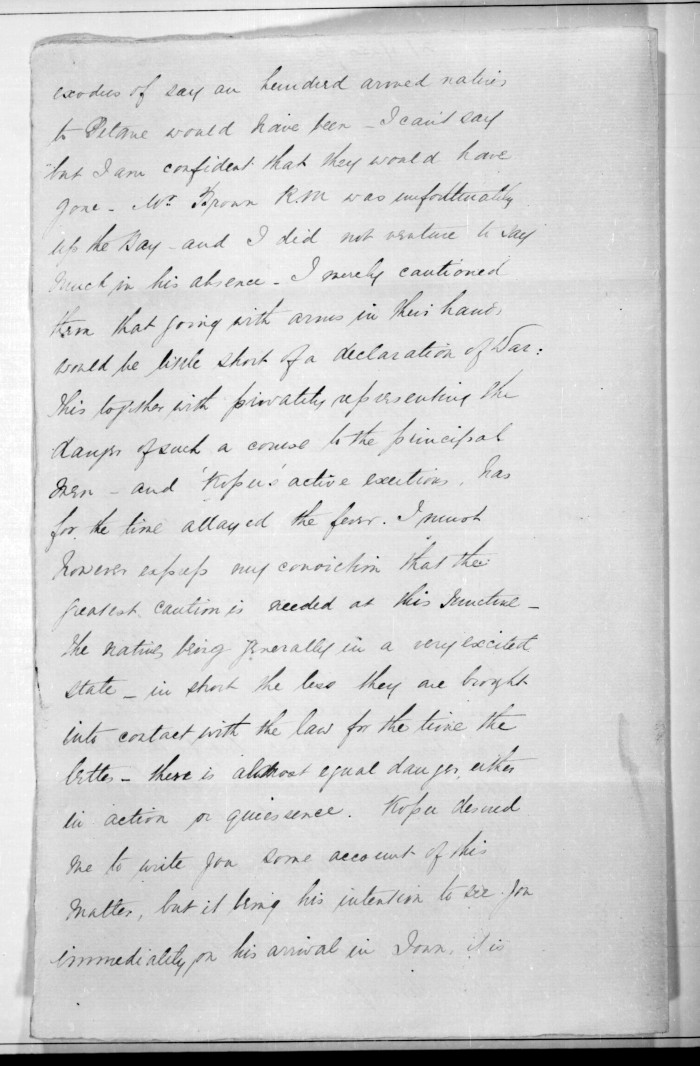 exodus of say an hundred armed natives
to Petane would have been – I can't say
but I am confident that they would have
gone – Mr. Brown RM was unfortunately
up the Bay – and I did not venture to say
much in his absence – I merely cautioned
them that going with arms in their hands
would be little short of a declaration of War:
this together with privately representing the
danger of such a course to the principal
men – and 'Kopu's' active exertions, has
for the time allayed the fever. I must
however express my conviction that the
greatest caution is needed at this Juncture –
the natives being generally in a very excited
state – in short the less they are brought
into contact with the law for the time the
better – there is almost equal danger either
in action or quiessence. Kopu desired
me to write you some account of this
matter, but it being his intention to see you
immediately on his arrival in Town, it is